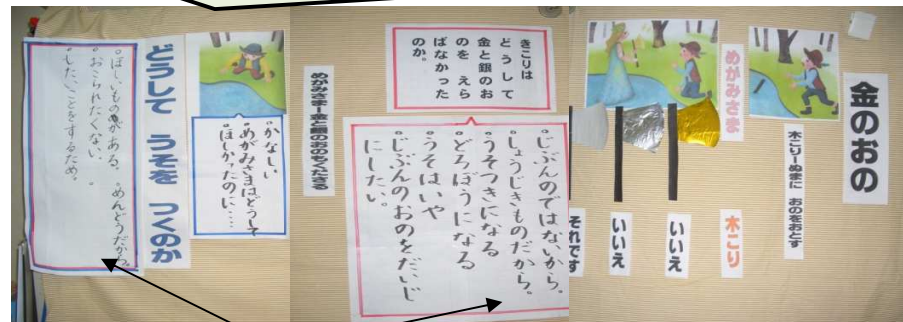 金のおの
木こりーぬまに おのをおとす
めがみさま
木こり
いいえ
いいえ
それです
きこりは
どうして
金と銀のお
のを えら
ばなかった
のか。
・じぶんのではないから。
・しょうじきものだから。
・うそつきになる
・どろぼうになる
・うそはいや
・じぶんのおのをだいじ
にしたい。
めがみさまー金と銀のおのもくださる
・かなしい
・めがみさまはどうして
ほしかったのに……
どうして うそを つくのか
・ほしいものがある。 ・めんどうだから。
・おこられたくない。
・したいことをするため。